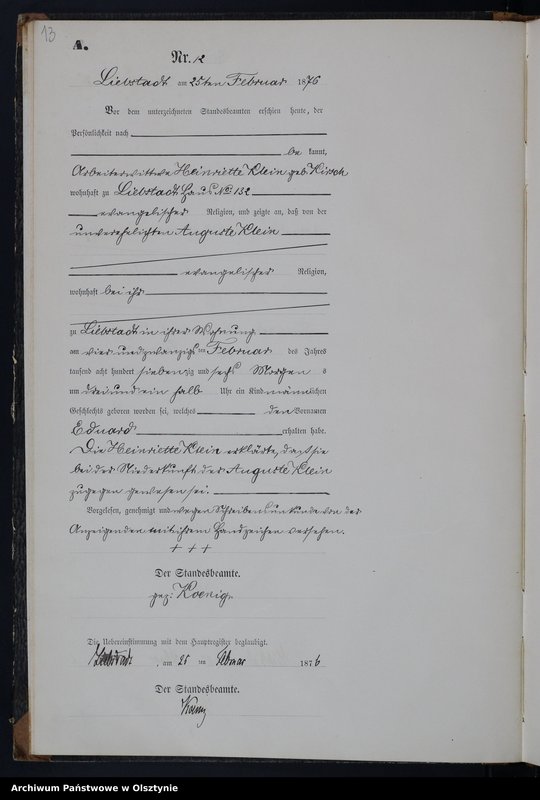 13
A.
Nr. 12
Liebstadt am 25ten Februar 1876
Vor dem unterzeichneten Standesbeamten erschien heute, der
Persönlichkeit nach
be kannt,
Arbeiterwittwe Heinriette Klein geb. Kirsch
wohnhaft zu Liebstadt Haus No 132
evangelischer Religion, und zeigte an, daß von der
unverehelichten Auguste Klein
evangelischer Religion,
wohnhaft bei ihr
zu Liebstadt in ihrer Wohnung
am vier und zwanzigs ten Februar des Jahres
tausend acht hundert siebenzig und sechs Morgen s
um drei und ein halb Uhr ein Kind männlichen
Geschlechts geboren worden sei, welches den Vornamen
Eduard erhalten habe.
Die Heinriette Klein erklärte, daß sie
bei der Niederkunft der Auguste Klein
zugegen gewesen sei.
Vorgelesen, genehmigt und wegen Schreibensunkunde von der
Anzeigenden mit ihrem Handzeichen versehen.
+ + +
Der Standesbeamte.
gez: Koenig.
Die Uebereinstimmung mit dem Hauptregister beglaubigt.
Liebstadt, am 25 ten Februar 1876
Der Standesbeamte.
Koenig
Archiwum Państwowe w Olsztynie